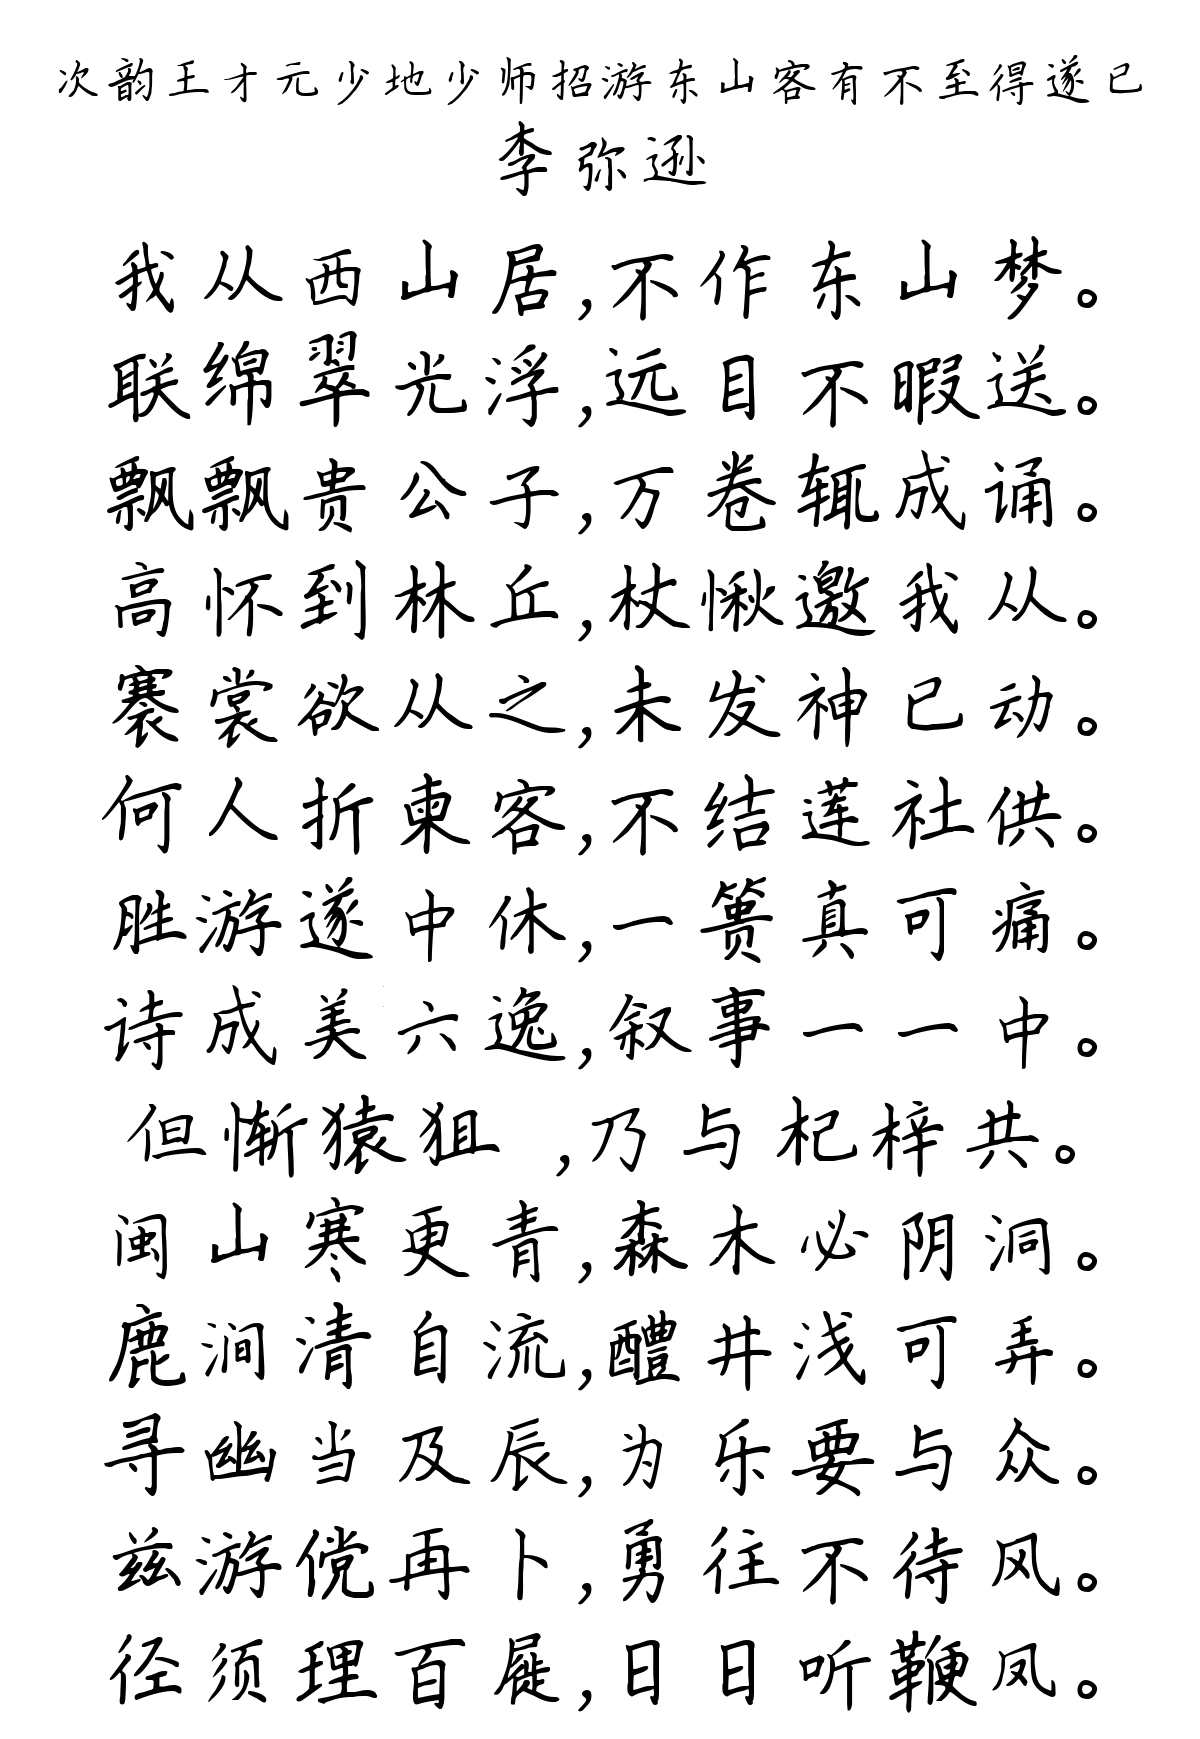 次韵王才元少地少师招游东山客有不至得遂已
李弥逊
我从西山居,不作东山梦。
联绵翠光浮,远目不暇送。
飘飘贵公子,万卷辄成诵。
高怀到林丘,杖愀邀我从。
褰裳欲从之,未发神已动。
何人折柬客,不结莲社供。
胜游遂中休,一篑真可痛。
诗成美六逸,叙事一一中。
但惭猿狙 ,乃与杞梓共。
闽山寒更青,森木必阴洞。
鹿涧清自流,醴井浅可弄。
寻幽当及辰,为乐要与众。
兹游傥再卜,勇往不待风。
径须理百屣,日日听鞭凤。